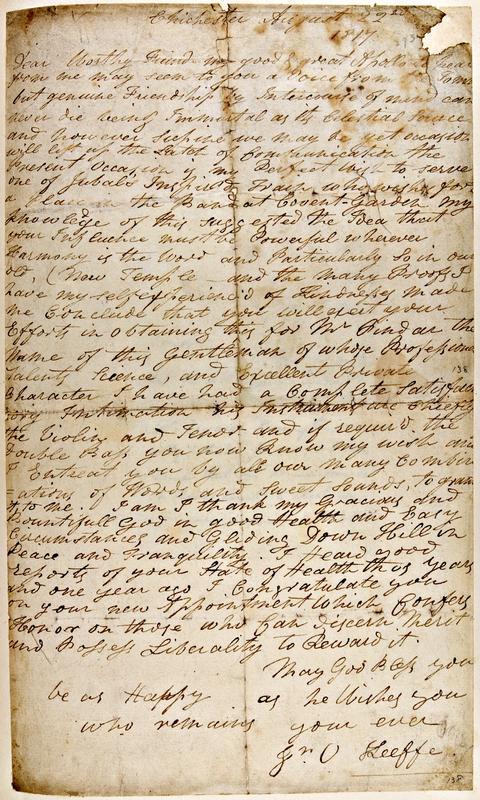 Chichester August 22nd
1817
Dear Worthy Friend my good & great Apollo to hear
from me may seem to you a Voice from Tomb
but genuine Friendship by Intercourse of mind can
never die being Immortal as its Celestial Source
and however Supine we may be yet occasion
will lift up the Latch of Communication the
Present Occasion is my Perfect Wish to serve
one of Jubals Inspired Train who wishes for
a Place in the Band at Covent-Garden my
knowledge of this suggested the Idea that
your Influence must be Powerful wherever
Harmony is the Word and Particularly so in our
old, (New Temple and the many Proofs I
have myself experienc'd of Kindness made
me Conclude that you will exert your
Efforts in obtaining this for Mr Pindar the
Name of this Gentleman of whose Professional
Talents, Science, and Excellent Private
Character I have had a Complete Satisfac
tory Intimation his Instruments are chiefly
the Violin and Tenor and if requir'd the
double Bass you now Know my wish and
I Entreat you by all our many Combin
=ations of Words and Sweet Sounds, to grant
it to me. I am I thank my Gracious and
Bountifull God in good Health and Easy
Circumstances and Gliding Down Hill in
Peace and Tranquility. I Heard good
reports of your State of Health this years
and one year ago I Congratulate you
on your new Appointment which Confers
Honor on those who can discern Merit
and Possess Liberality to Reward it.
May God Bless you
be as Happy as he Wishes you
who remains your ever
Jn O Keeffe.
138
138